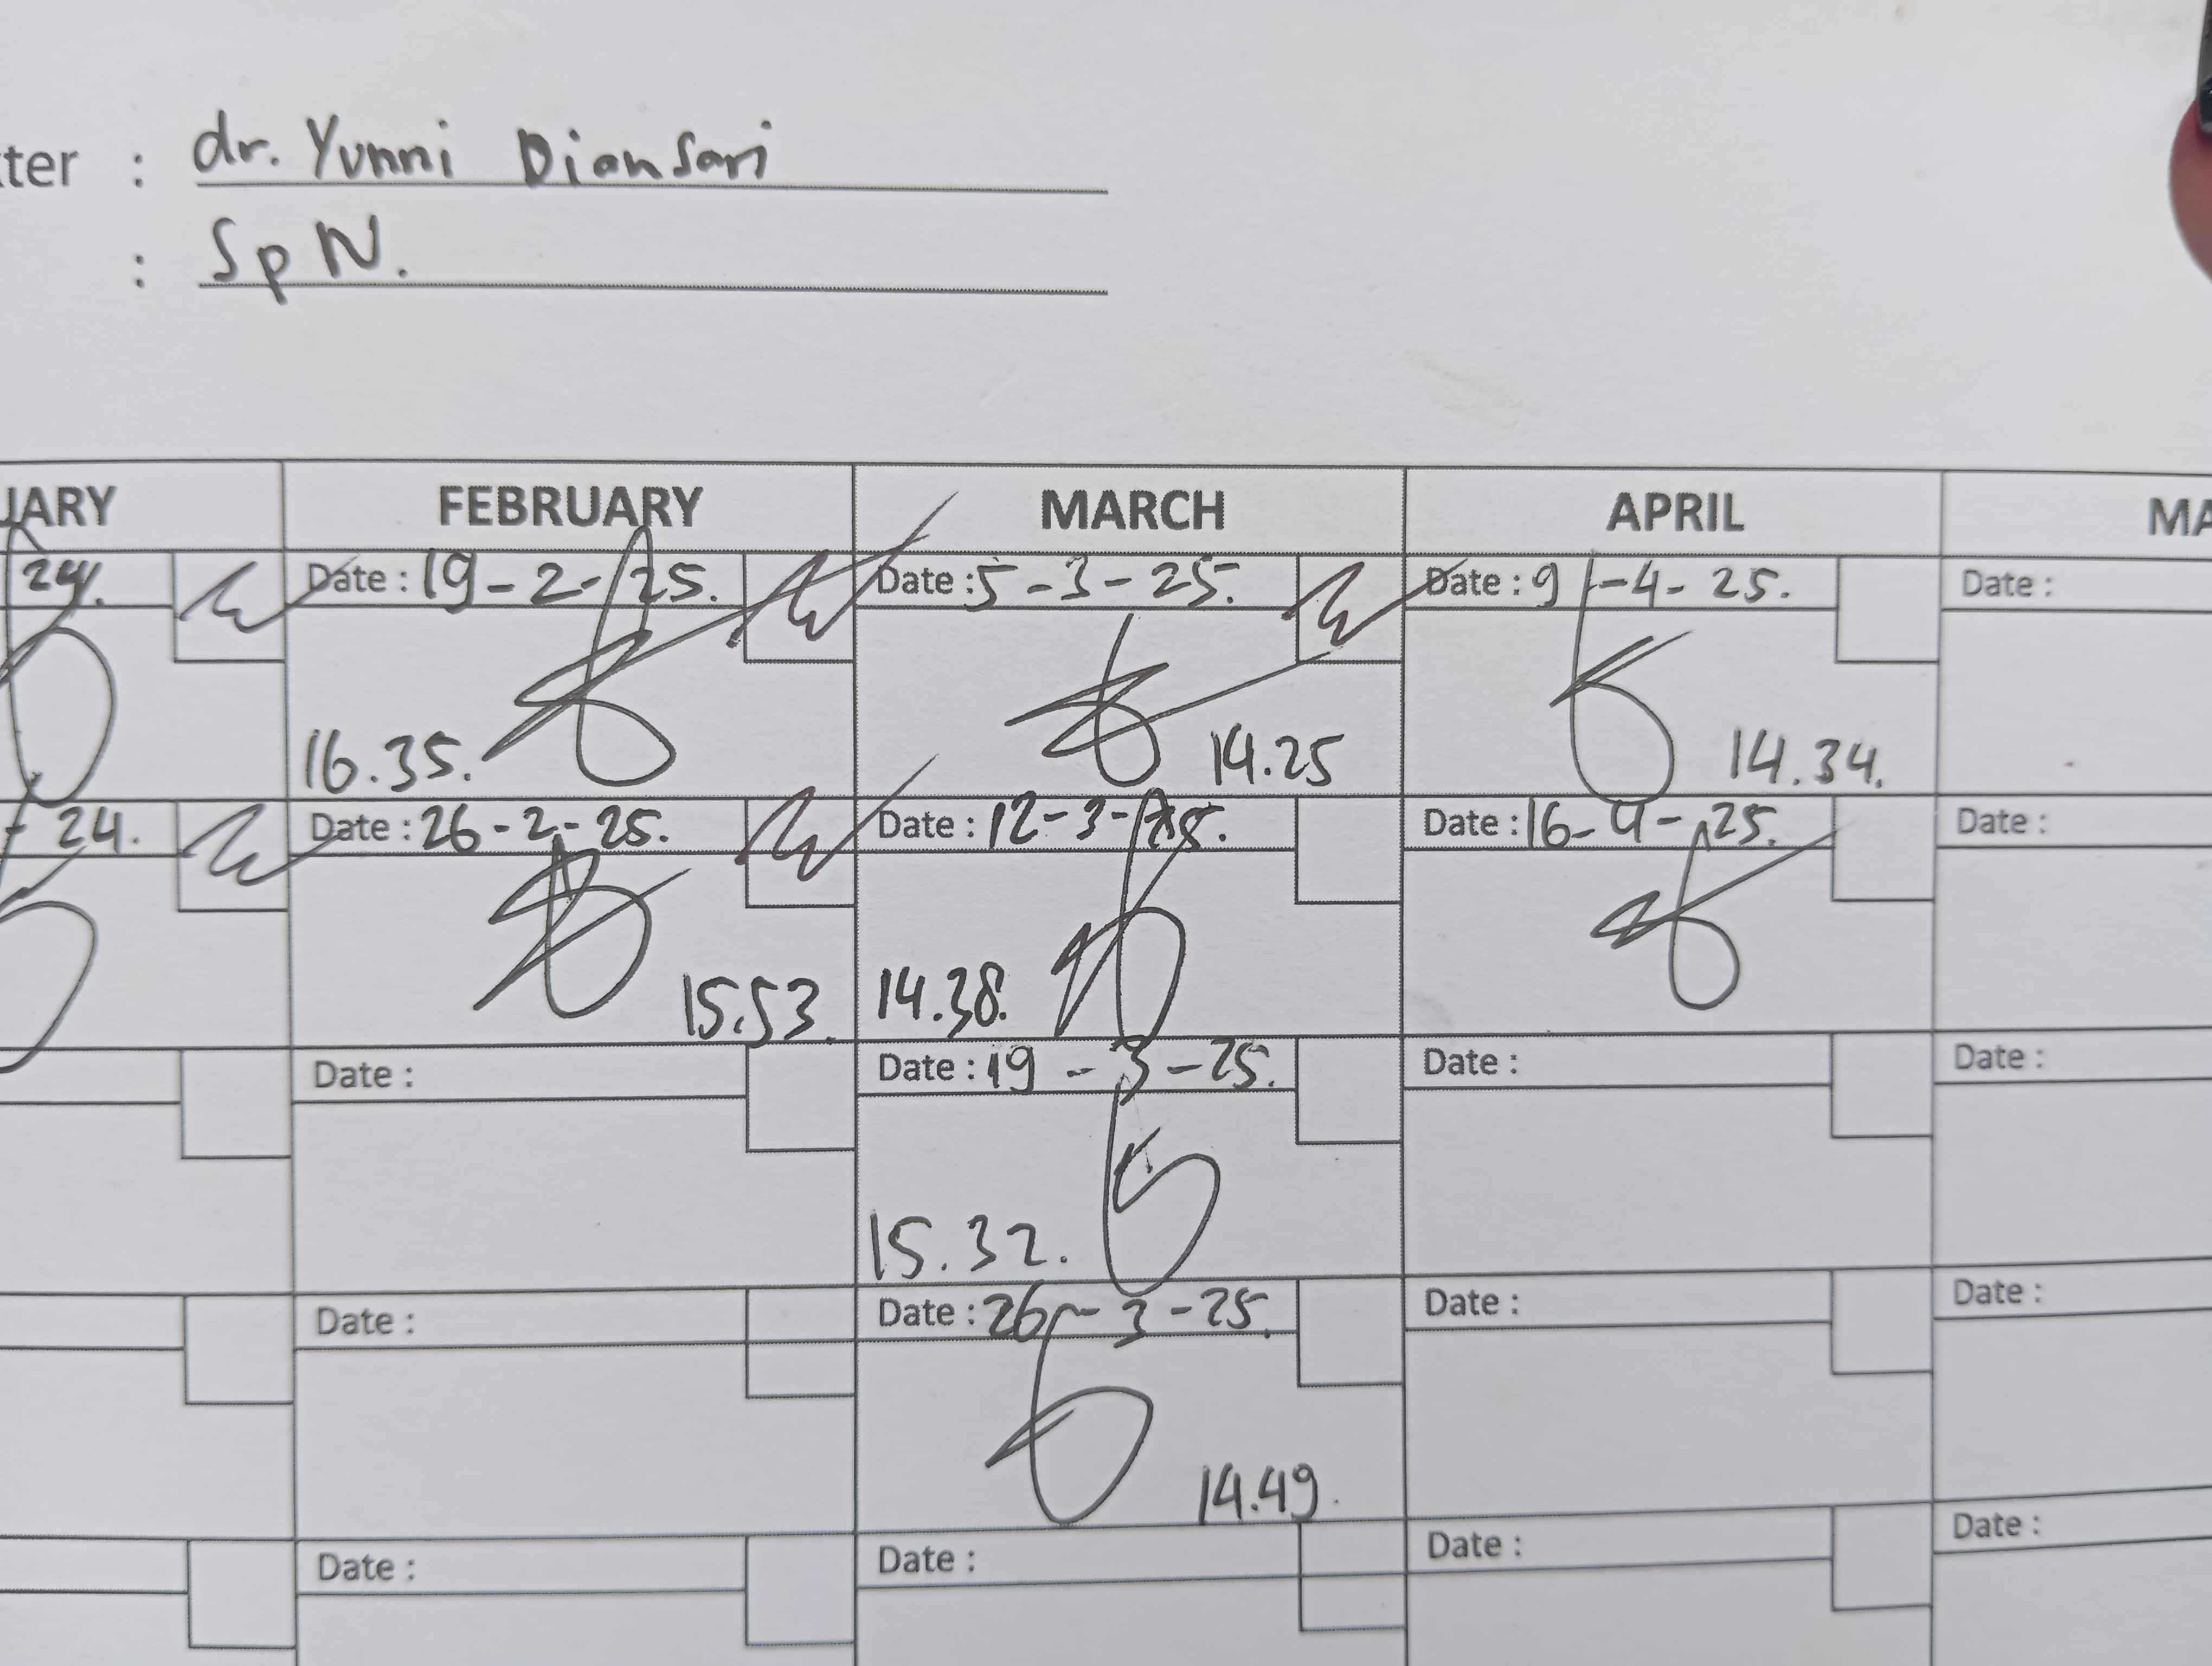 ter : dr. Yunni Diansari
: Sp N.
UARY FEBRUARY MARCH APRIL MA
24. Date : 19-2-25. Date : 5-3-25. Date : 9-4-25. Date :
16.35. 14.25 14.34.
24. Date : 26-2-25. Date : 12-3-25. Date : 16-4-25. Date :
15.53. 14.38.
Date : Date : 19-3-25. Date : Date :
15.32.
Date : Date : 26-3-25. Date : Date :
14.49.
Date : Date : Date : Date :